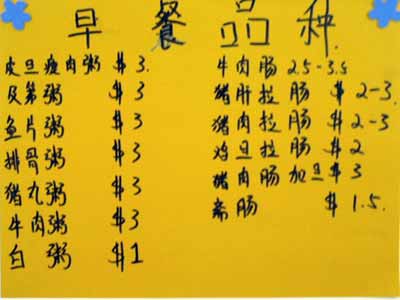 早餐品种
皮旦瘦肉粥 $3.
及第粥 $3
鱼片粥 $3
排骨粥 $3
猪丸粥 $3
牛肉粥 $3
白粥 $1
牛肉肠 2.5-3.5
猪肝拉肠 $2-3.
猪肉拉肠 $2-3
鸡旦拉肠 $2
猪肉肠加旦 $3
斋肠 $1.5.